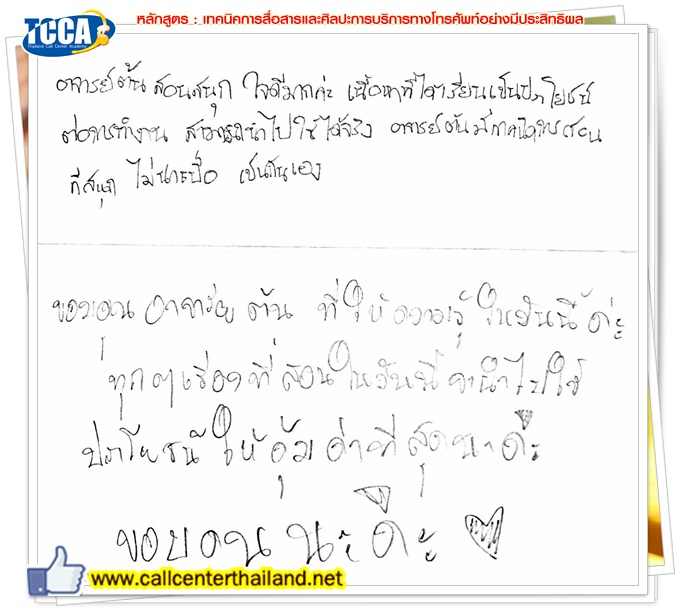 TCCA
Thailand Call Center Academy
หลักสูตร : เทคนิคการสื่อสารและศิลปะการบริการทางโทรศัพท์อย่างมีประสิทธิผล
อาจารย์ต้น สอนสนุก ใจดีมากค่ะ เนื้อหาที่ได้เรียนเป็นประโยชน์
ต่อการทำงาน สามารถนำไปใช้ได้จริง อาจารย์ต้นมีเทคนิคการสอน
ที่สนุก ไม่น่าเบื่อ เป็นกันเอง
ขอบคุณ อาจารย์ ต้น ที่ให้ความรู้ ในวันนี้ ค่ะ
ทุกๆเรื่องที่สอนในวันนี้ จะนำไปใช้
ประโยชน์ให้คุ้มค่าที่สุดนะค่ะ
ขอบคุณ นะค่ะ
www.callcenterthailand.net